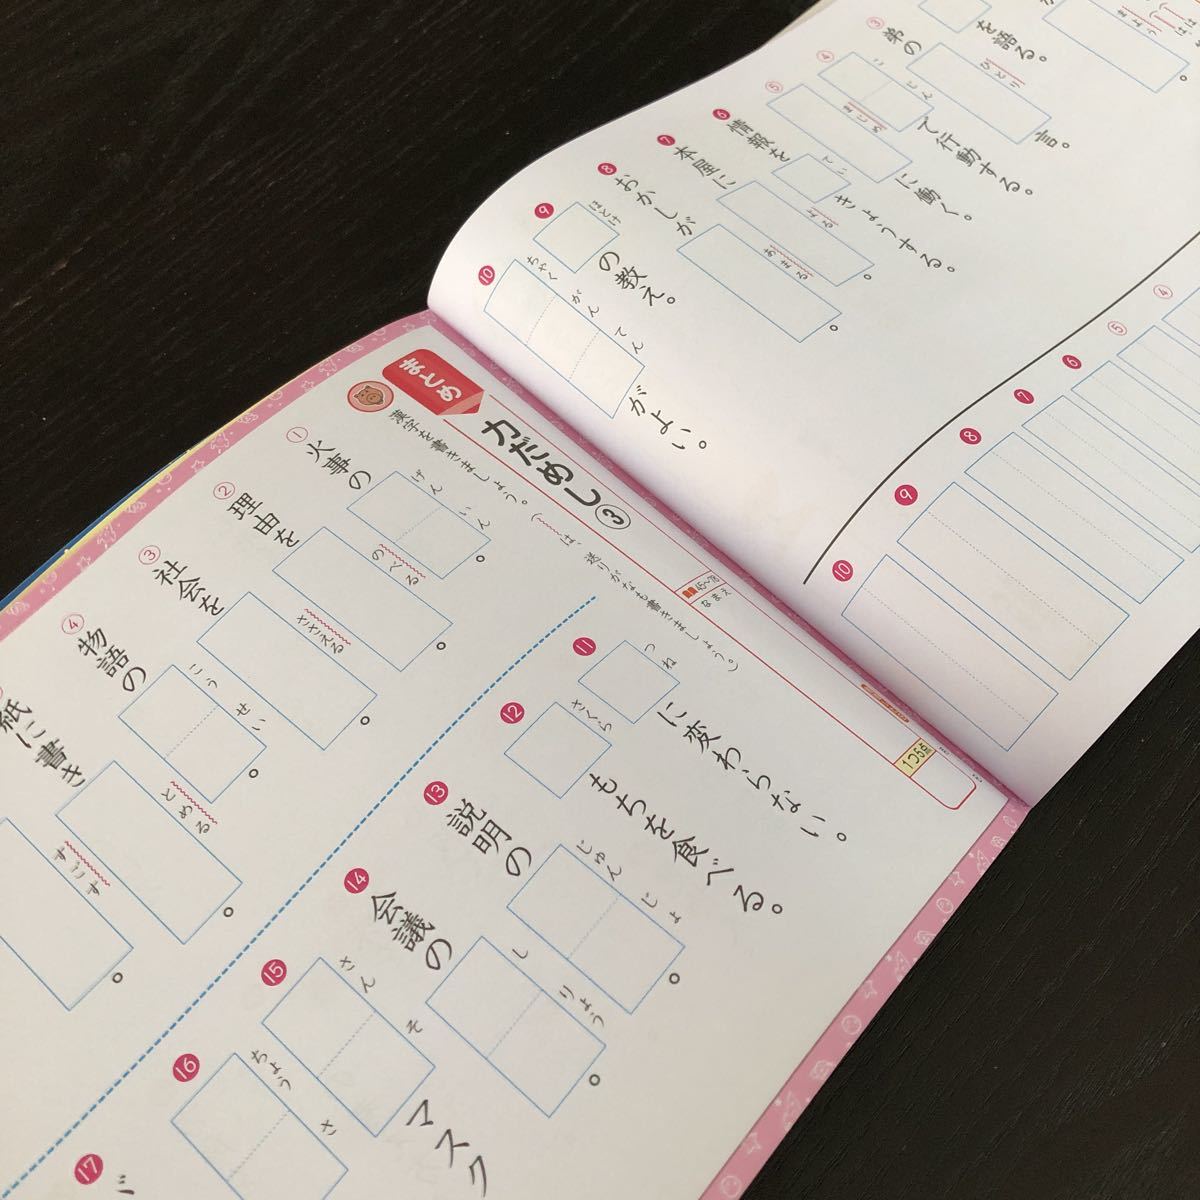 きょう
はは
を語る。
③
弟の
ひとり
言。
④
こじん
で行動する。
⑤
まじめ
に働く。
⑥
情報を
てい
きょうする。
⑦
本屋に
よる
。
⑧
おかしが
あまる
。
⑨
ほとけ
の教え。
⑩
ちゃくがんてん
がよい。
④
⑤
⑥
⑦
⑧
⑨
⑩
まとめ
力だめし③
漢字を書きましょう。(〰は、送りがなも書きましょう。)
65~78
なまえ
1つ5点
①
火事の
げんいん
。
②
理由を
のべる
。
③
社会を
ささえる
。
④
物語の
こうせい
。
紙に書き
とめる
。
すごす
。
⑪
つね
に変わらない。
⑫
さくら
もちを食べる。
⑬
説明の
じゅんじょ
。
⑭
会議の
しりょう
。
⑮
さんそ
マスク
⑯
ちょうさ
⑰